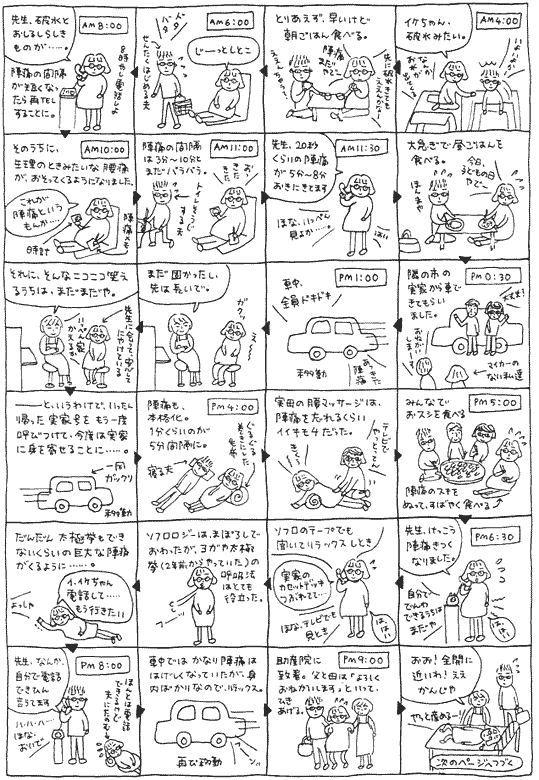 AM 4:00
イケちゃん、
破水みたい。
お水が
出とる〜
とりあえず、早いけど
朝ごはん食べる。
陣痛
まだ
やで
先に破水きても
ええんかな
AM 6:00
じーっとしとこ
ドタ
バタ
せんたくはじめる夫
AM 8:00
先生、破水と
おしるしらしき
ものが……。
8時やし電話しよ
陣痛の間隔
が短くなっ
たら再TEL
することに。
AM 10:00
そのうちに、
生理のときみたいな腰痛
が、おそってくるようになりました。
これが
陣痛という
もんか…
陣痛らしき
時計
AM 11:00
陣痛の間隔
は3分〜10分と
まだバラバラ。
お、
きた
きた
する夫
AM 11:30
先生、20秒
くらいの陣痛
が5分〜8分
おきにきてます
ほな、いっぺん
見よか……。
はい
大急ぎで昼ごはんを
食べる。
今日、
うどもの日
やで〜
ほんまや
PM 0:30
隣の市の
実家から車で
きてもらい
ました。
大丈夫!
おねがいします
マイカーの
ない私達
PM 1:00
車中、
全員ドキドキ
初出動
あっ きた
陣痛
まだ固かったし、
先は長いで。
ガクッ
え〜
それに、そんなニコニコ笑え
るうちは、まだまだや。
先生に会って安心して
にやけている
いっぺん
家
かえるか
――というわけで、いったん
帰った実家号をもう一度
呼びつけて、今度は実家
に身を寄せることに……。
一同
ガックリ
PM 4:00
陣痛も、
本格化。
1分くらいのが
5分間隔に。
寝る夫
ぐるぐる
巻きにした
毛布
実母の腰マッサージは、
陣痛を忘れるくらい
イイキモチだった。
きくぅ
テレビで
やっとってん
PM 5:00
みんなで
おスシを食べる
陣痛のスキを
ぬって、すばやく食べる
PM 6:30
先生、けっこう
陣痛きつく
なりました。
自分で
でんわ
できるうちは
まだや
はい
ソフロのテープでも
聞いてリラックスしとき
実家の
カセットデッキ
つぶれてて…
ほな、テレビでも
見とき
はい
ソフロロジーは、まぼろしで
おわったが、ヨガや太極
拳(2年前からやっていた)の
呼吸法
はとても
役立った。
だんだん太極拳もでき
ないくらいの巨大な陣痛
がくるように……。
イ、イケちゃん
電話して……
もう行きたい!
よっしゃ
PM 8:00
先生、なんか、
自分で電話
できひん
言うてます
ハ・ハ・ハ…
ほな、
おいで
ほんとは電話
できるけど
夫にたのむ
車中ではかなり陣痛は
はげしくなっていたが、身
内ばかりなので、リラックス。
再び出動
PM 9:00
助産院に
到着。父と母は「よろしく
おねがいします」といって、
ひき
あげる。
おお!全開に
近いわ!ええ
かんじや
やっと産める…
次のページへつづく